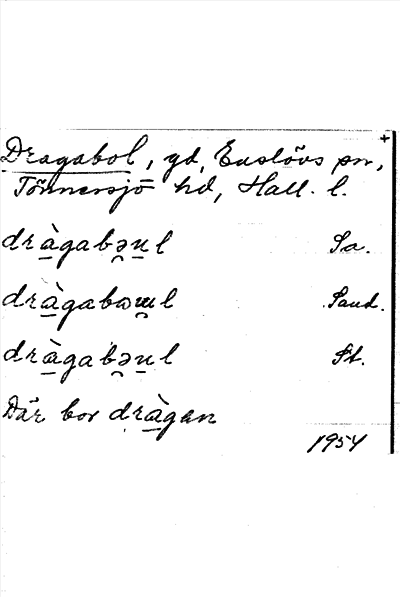 +
Dragabol, gd, Enslövs sn,
Tönnersjö hd, Hall. l.
dràgabə̯u̲l Sa.
dràgabɷɯ̯l Sand.
dràgabə̯u̲l St.
Där bor dràgen
1954